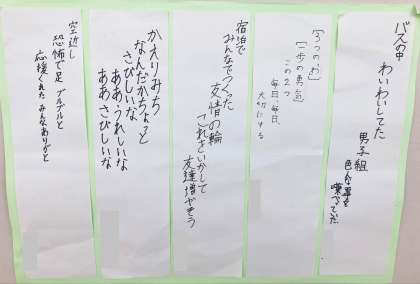 バスの中
わいわいしてた
男子組
色んな事を
喋べっていた
「3つのお」
「一歩の勇気」
この2つ
毎日、毎日、
大切にする
宿泊で
みんなでつくった
友情の輪
これをいかして
友達増やそう
かえりみち
なんだかちょっと
さびしいな
ああ、うれしいな
ああさびしいな
空近し
恐怖で足 プルプルと
応援くれた みんなありがと